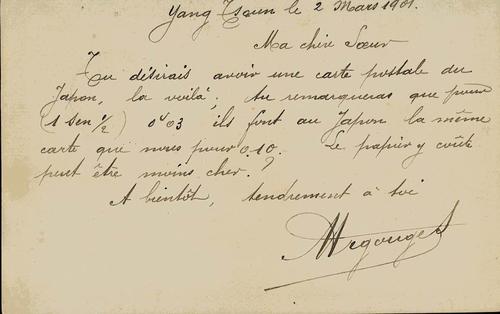 Yang Tsoun le 2 Mars 1901.
Ma chère Soeur
Tu désirais avoir une carte postale du
Japon, la voilà, tu remarqueras que pour
(1 sen 1/2) 0f03 ils font au Japon la même
carte que nous pour 0.10. Le papier y coûte
peut être moins cher.?
A bientôt, tendrement à toi